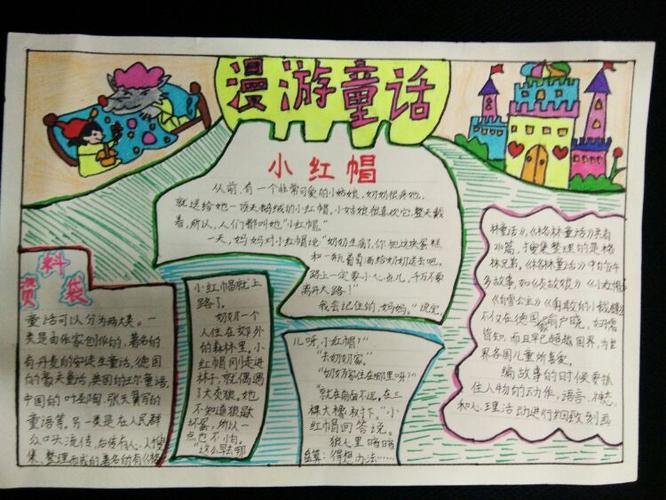 漫游童话
小红帽
从前,有一个非常可爱的小姑娘,奶奶很疼她,
就送给她一顶天鹅绒的小红帽,小姑娘很喜欢它,整天戴
着,所以,人们都叫她“小红帽”
一天,妈妈对小红帽说“奶奶生病了,你把这块蛋糕
和一瓶葡萄酒给奶奶送去吧,
路上一定要小心点儿,千万不要
离开大路!”
“我会记住的,妈妈。”说完,
小红帽就上
路了。
奶奶一个
人住在郊外
的森林里,小
红帽刚走进
林子,就偶遇
了大灰狼,她
不知道狼是
坏蛋,所以一
点也不怕。
“这么早去哪
儿呀,小红帽?”
“去奶奶家。”
“奶奶家住在哪里呀?”
“就在前面不远,在三
棵大橡树下,”小
红帽回答说。
狼心里暗暗
盘算:得想办法……
资料袋
童话可以分为两大类。一
类是由作家创作的,著名的
有丹麦的安徒生童话,德国
的豪夫童话,英国的王尔德童话,
中国的叶圣陶、张天翼写的
童话等。另一类是在人民群
众口头流传,后经有心人收
集、整理而成的,著名的有《格
林童话》。《格林童话》共有
搜集整理的是格
林兄弟。《格林童话》中有许
多故事,如《灰姑娘》《小红帽》
《白雪公主》《勇敢的小裁缝》
不仅在德国家喻户晓,妇孺
皆知,而且早已超越国界,为世
界各国儿童所喜爱。
编故事的时候要抓
住人物的动作,语言,神态
和心理活动进行细致刻画